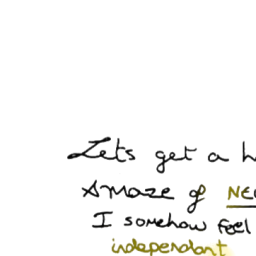 Lets get a h
Amaze of NE
I somehow feel
independant